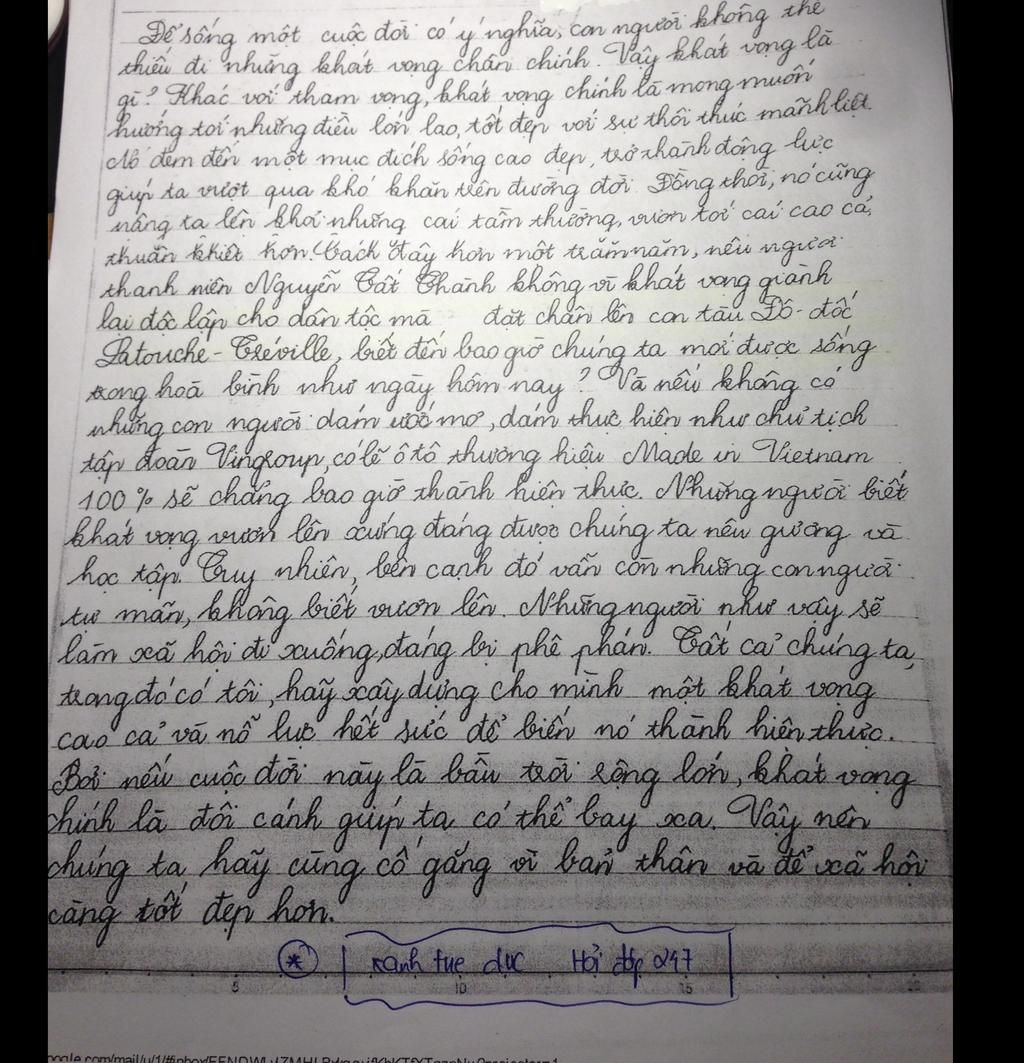 Để sống một cuộc đời có ý nghĩa, con người không thể
thiếu đi những khát vọng chân chính. Vậy khát vọng là
gì? Khác với tham vọng, khát vọng chính là mong muốn
hướng tới những điều lớn lao, tốt đẹp với sự thôi thúc mãnh liệt.
Nó đem đến một mục đích sống cao đẹp, trở thành động lực
giúp ta vượt qua khó khăn trên đường đời. Đồng thời, nó cũng
nâng ta lên khỏi những cái tầm thường, vươn tới cái cao cả,
thuần khiết hơn. Cách đây hơn một trăm năm, nếu người
thanh niên Nguyễn Tất Thành không vì khát vọng giành
lại độc lập cho dân tộc mà đặt chân lên con tàu Đô-đốc
Latouche-Tréville, biết đến bao giờ chúng ta mới được sống
trong hoà bình như ngày hôm nay? Và nếu không có
những con người dám ước mơ, dám thực hiện như chủ tịch
tập đoàn Vingroup, có lẽ ô tô thương hiệu Made in Vietnam
100% sẽ chẳng bao giờ thành hiện thực. Những người biết
khát vọng vươn lên xứng đáng được chúng ta nêu gương và
học tập. Tuy nhiên, bên cạnh đó vẫn còn những con người
tự mãn, không biết vươn lên. Những người như vậy sẽ
làm xã hội đi xuống, đáng bị phê phán. Tất cả chúng ta,
trong đó có tôi, hãy xây dựng cho mình một khát vọng
cao cả và nỗ lực hết sức để biến nó thành hiện thực.
Bởi nếu cuộc đời này là bầu trời rộng lớn, khát vọng
chính là đôi cánh giúp ta có thể bay xa. Vậy nên
chúng ta hãy cùng cố gắng vì bản thân và để xã hội
càng tốt đẹp hơn.
* Hỏi đáp 247
5 10 15 20